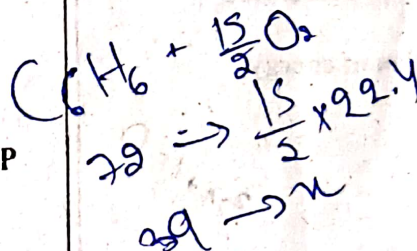 C6H6 + 15/2 O2
P
78 ⇒ 15/2 × 22.4
39 → x